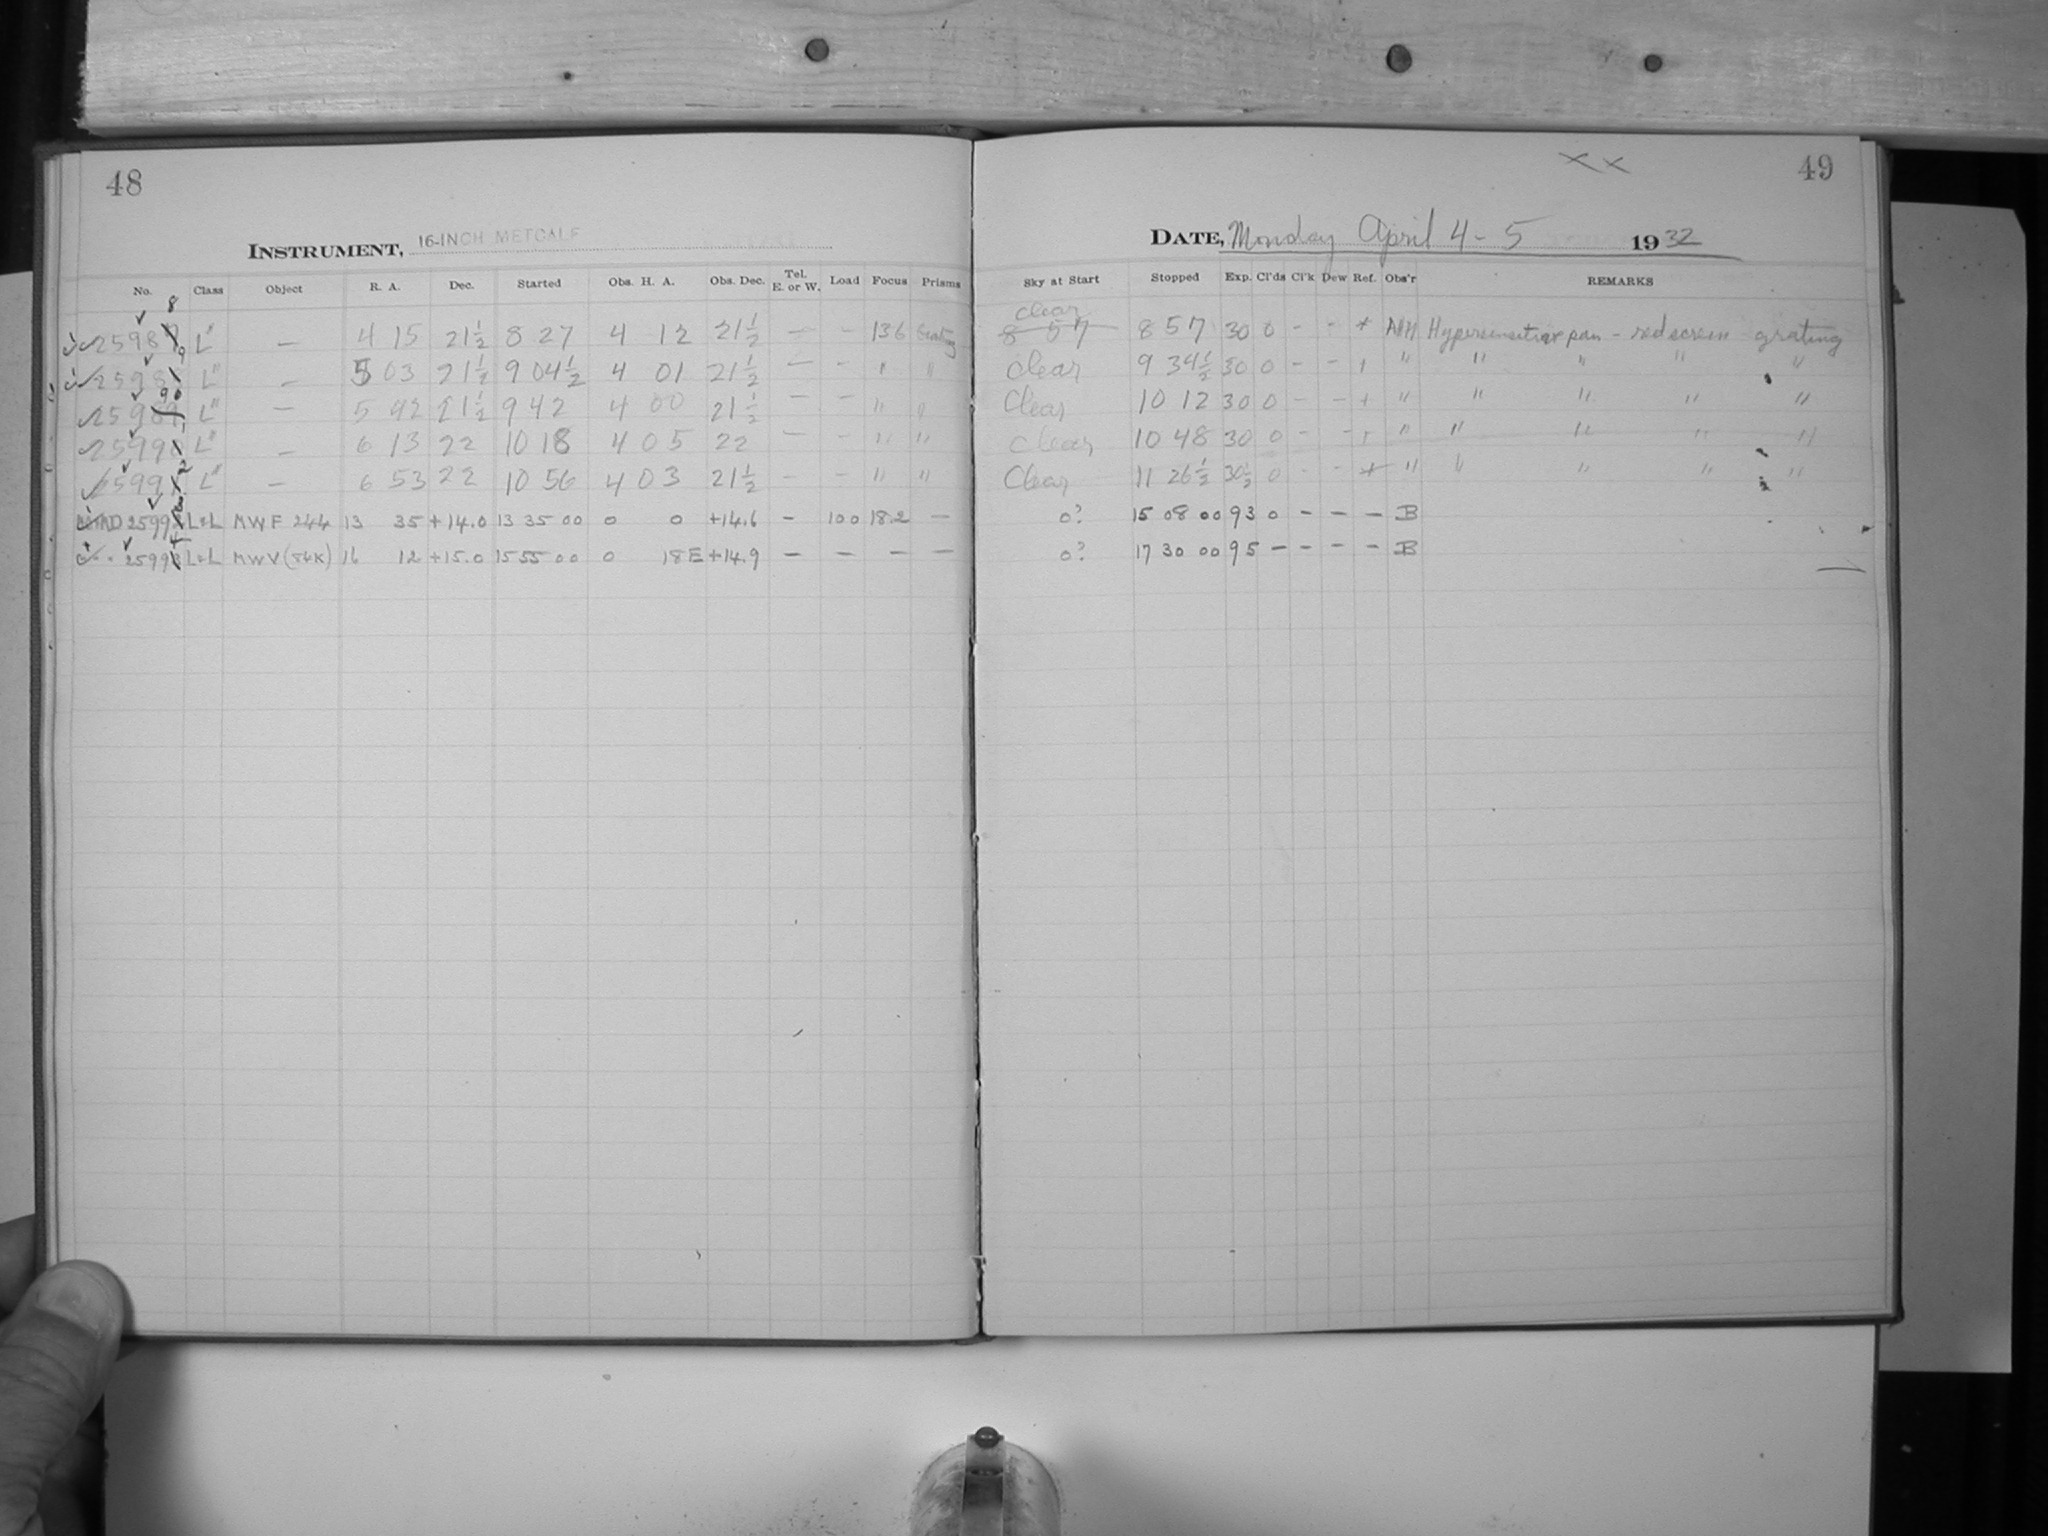 48
INSTRUMENT, 16-INCH METCALF
No. Class Object R. A. Dec. Started Obs. H. A. Obs. Dec. Tel. E. or W. Load Focus Prisms
8
2598 L" — 4 15 21½ 8 27 4 12 21½ — - 136 Grating
9
2598 L" — 5 03 21½ 9 04½ 4 01 21½ — - " "
90
2598 L" — 5 42 21½ 9 42 4 00 21½ — - " "
2599 L" — 6 13 22 10 18 4 05 22 — - " "
2599 L" — 6 53 22 10 56 4 03 21½ — - " "
2599 L&L MWF 244 13 35 +14.0 13 35 00 0 0 +14.6 — 100 18.2 —
2599 L&L MWV(54K) 16 12 +15.0 15 55 00 0 18E +14.9 — — — —
XX 49
DATE, Monday April 4-5 1932
Sky at Start Stopped Exp. Cl'ds Cl'k Dew Ref. Obs'r REMARKS
clear
8 57 8 57 30 0 - - + Hypersensitive pan - red screen - grating
clear 9 34½ 30 0 - - + " " " " "
Clear 10 12 30 0 - - + " " " " "
clear 10 48 30 0 - - + " " " " "
Clear 11 26½ 30½ 0 - - + " " " " "
0? 15 08 00 93 0 — — — B
0? 17 30 00 95 — — — — B